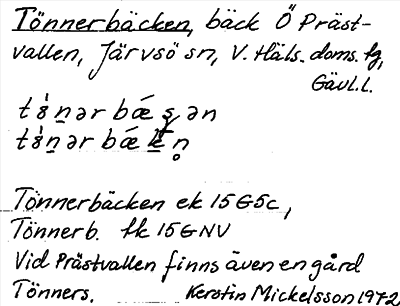 Tönnerbäcken, bäck Ö Präst-
vallen, Järvsö sn, V. Häls. doms. tg,
Gävl. l.
Tönnerbäcken ek 15G5c,
Tönnerb. tk 15GNV
Vid Prästvallen finns även en gård
Tönners. Kerstin Mickelsson 1972